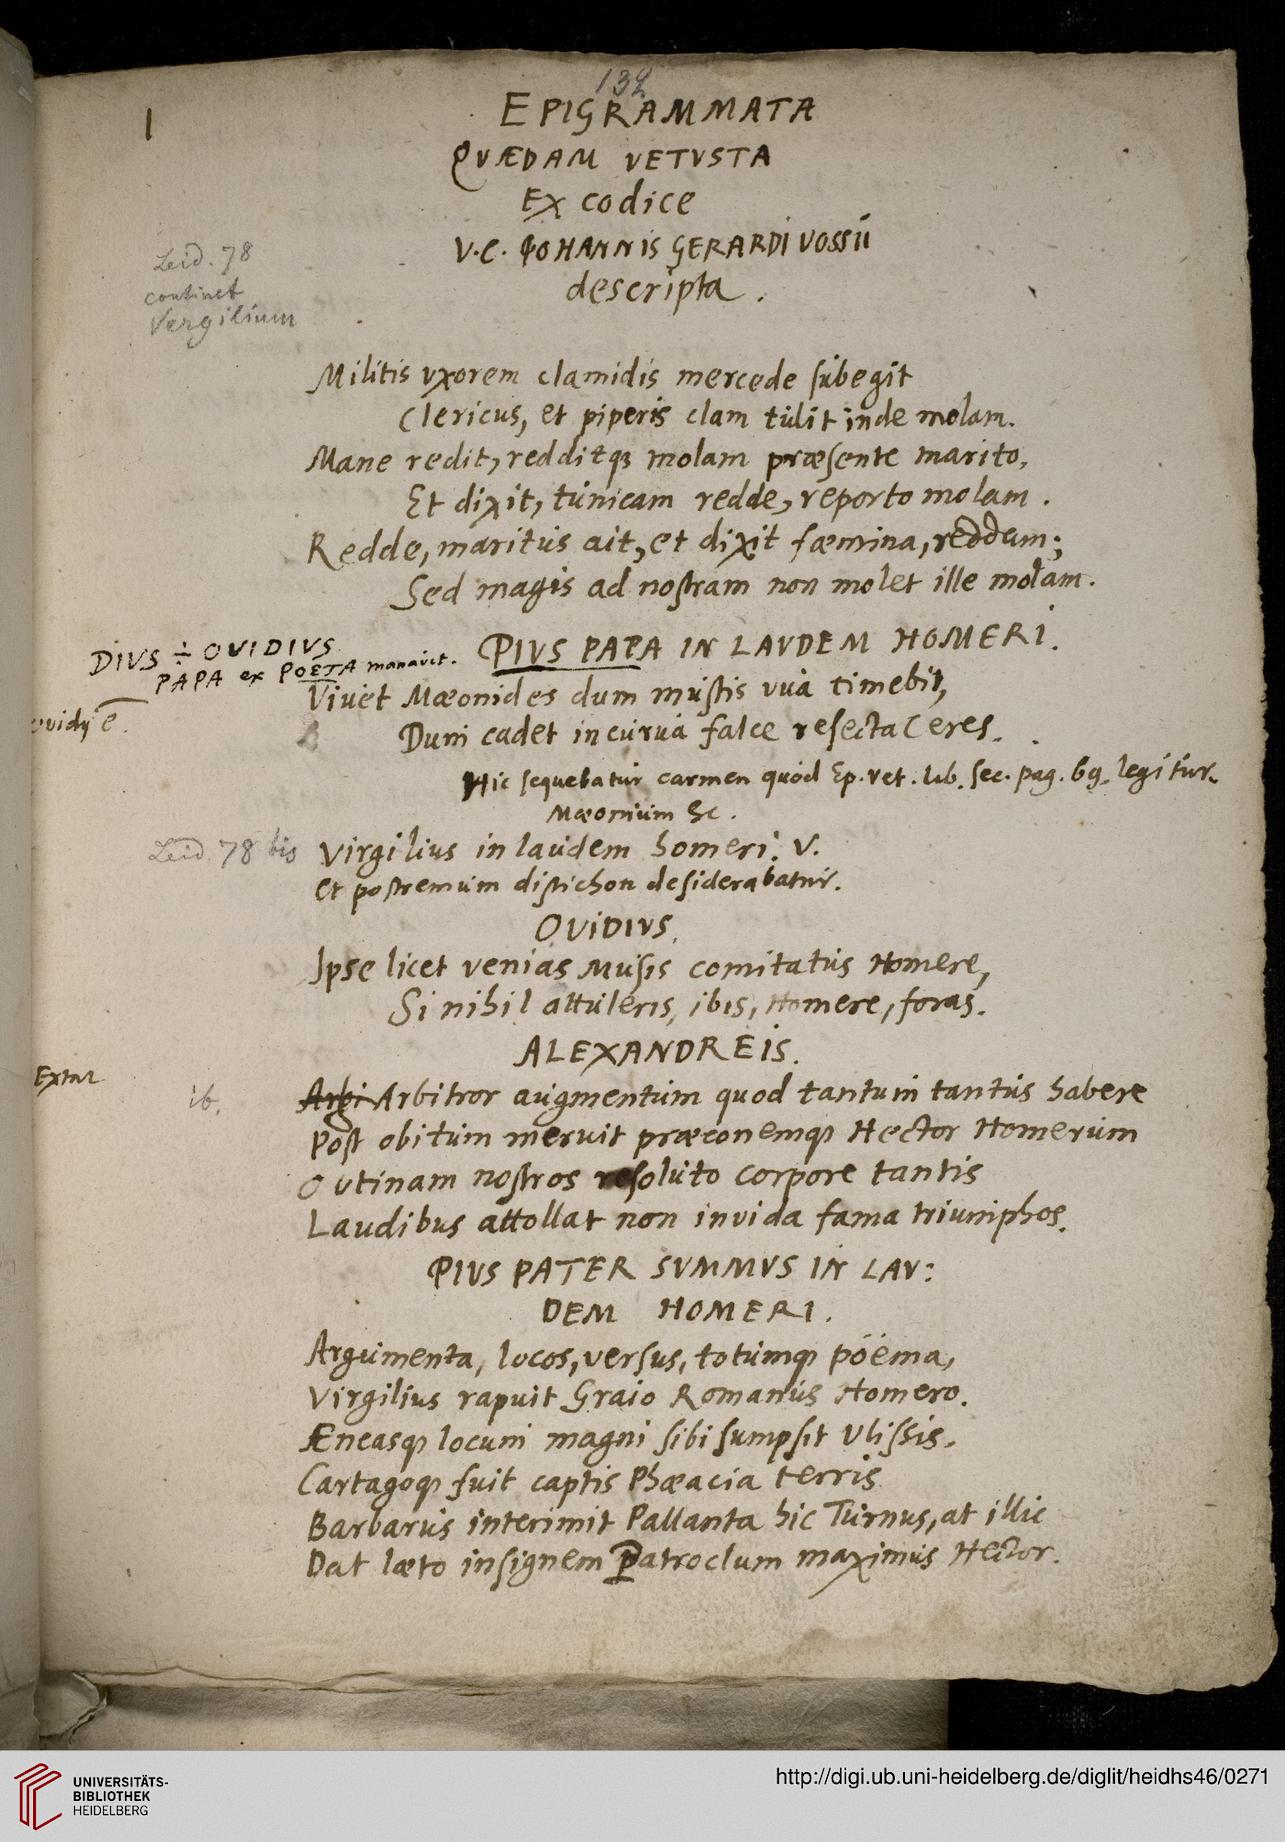 132
EPIGRAMMATA
QVÆDAM VETVSTA
Ex codice
V.C. JOHANNIS GERARDI VOSSII
descripta.
1
Leid. 78
continet
Vergilium
Militis vxorem clamidis mercede subegit
Clericus, et piperis clam tulit inde molam.
Mane redit, redditqȝ molam præsente marito,
Et dixit, tunicam redde, reporto molam.
Redde, maritus ait, et dixit fæmina, reddam;
Sed magis ad nostram non molet ille molam.
PIVS PAPA IN LAVDEM HOMERI.
DIVS ÷ OVIDIVS
PAPA ex POETA manavit.
Viuet Mæonides dum mustis vua timebit,
ovidij ē.
Dum cadet incurua falce resecta Ceres.
Hic sequebatur carmen quod Ep. vet. lib. sec. pag. 69. legitur.
Mæonium &c.
Leid. 78 bis
Virgilius in laudem homeri. V.
et postremum distichon desiderabatur.
OVIDIVS.
Ipse licet venias Musis comitatus Homere,
Si nihil attuleris, ibis, Homere, foras.
ALEXANDREIS.
Extat
ib.
Arbi Arbitror augmentum quod tantum tantus habere
Post obitum meruit præconemqȝ Hector Homerum
O vtinam nostros resoluto corpore tantis
Laudibus attollat non invida fama triumphos.
PIVS PATER SVMMVS IN LAV:
DEM HOMERI.
Argumenta, locos, versus, totumqȝ pöëma,
Virgilius rapuit Graio Romanus Homero.
Æneasqȝ locum magni sibi sumpsit Vlissis.
Cartagoqȝ fuit captis Phæacia terris
Barbarus interimit Pallanta hic Turnus, at illic
Dat læto insignem Patroclum maximus Hector.
UNIVERSITÄTS-
BIBLIOTHEK
HEIDELBERG
http://digi.ub.uni-heidelberg.de/diglit/heidhs46/0271